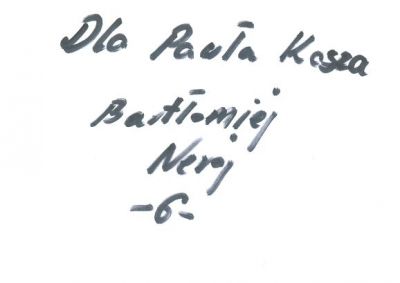 Dla Pawła Kosza
Bartłomiej
Neroj
-6-